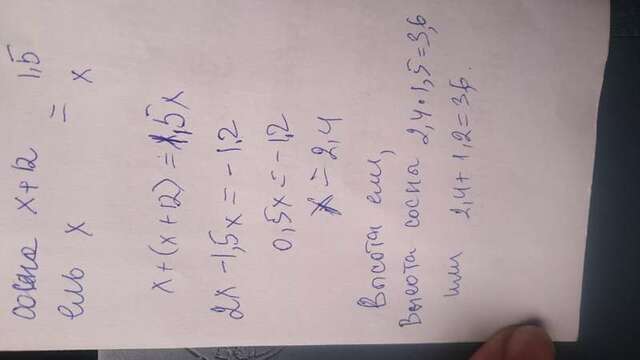 сосна x+12 = 1,5
ель x x
x+(x+12)=1,5x
2x-1,5x=-1,2
0,5x=-1,2
x=2,4
Высота ели,
Высота сосны 2,4·1,5=3,6
или 2,4+1,2=3,6.